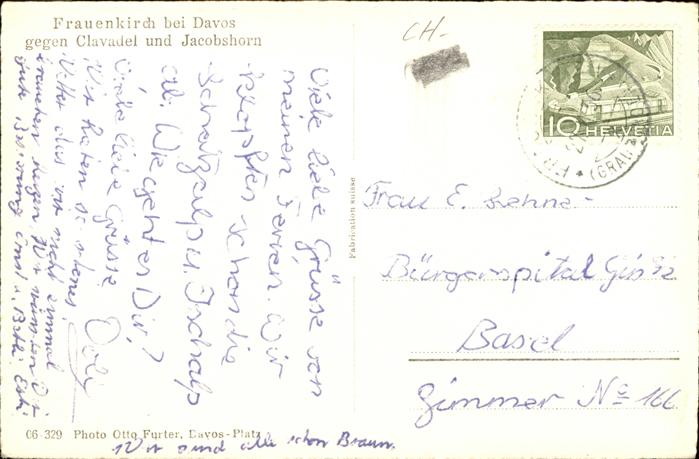 Frauenkirch bei Davos
gegen Clavadel und Jacobshorn
CH-
10 HELVETIA
(GRAU
Viele liebe Grüsse von
meinen Ferien. Wir
klopften schon die
Schatzalp u. Ischalp
ab. Wie geht es Dir?
Viele liebe Grüsse
Wir haben schönes
Wetter das ist nicht einmal
Wir wünschen Dir
gute Besserung
Fabrication suisse
Frau E.
Bürgerspital
Basel
Zimmer No 166
06-329 Photo Otto Furter, Davos-Platz
Wir sind alle schon Braun.